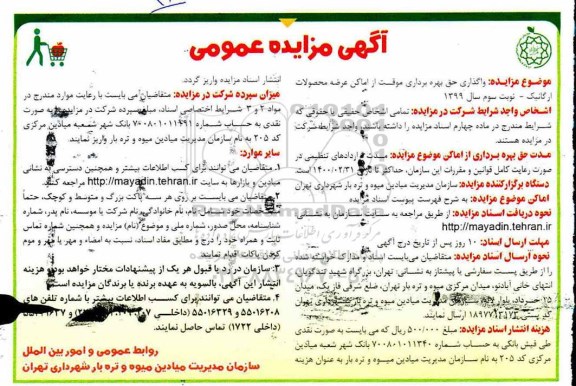 آگهی مزایده عمومی
موضوع مزایده: واگذاری حق بهره برداری موقت از اماکن عرضه محصولات
ارگانیک - نوبت سوم سال ۱۳۹۹
اشخاص واجد شرایط شرکت در مزایده: تمامی اشخاص حقیقی یا حقوقی که
شرایط مندرج در ماده چهارم اسناد مزایده را داشته باشند، واجد شرایط شرکت
در مزایده هستند.
مدت حق بهره برداری از اماکن موضوع مزایده: مدت قراردادهای تنظیمی در
صورت رعایت کامل قوانین و مقررات این سازمان، حداکثر تا ۱۴۰۰/۰۲/۳۱ است.
دستگاه برگزارکننده مزایده: سازمان مدیریت میادین میوه و تره بار شهرداری تهران
اماکن موضوع مزایده: به شرح فهرست پیوست اسناد مزایده
نحوه دریافت اسناد مزایده: از طریق مراجعه به سایت سازمان به
http://mayadin.tehran.ir
مهلت ارسال اسناد: ۱۰ روز پس از تاریخ درج آگهی
نحوه ارسال اسناد مزایده: متقاضیان می‌بایست اسناد و مدارک خواسته شده
را از طریق پست سفارشی یا پیشتاز به نشانی: تهران، بزرگراه شهید تندگویان،
انتهای خانی آبادنو، میدان مرکزی میوه و تره بار تهران، ضلع شرقی فاز یک، میدان
مدیریت میادین میوه و تره بار شهرداری تهران
ارسال نمایند.
هزینه انتشار اسناد مزایده: مبلغ ۵۰۰/۰۰۰ ریال که می بایست به صورت نقدی
طی فیش بانکی به حساب شماره ۷۰۰۸۰۱۰۱۱۳۴۰ بانک شهر شعبه میادین
مرکزی کد ۲۰۵ به نام سازمان مدیریت میادین میوه و تره بار به عنوان هزینه
انتشار اسناد مزایده واریز گردد.
میزان سپرده شرکت در مزایده: متقاضیان می بایست با رعایت موارد مندرج در
مواد ۲ و ۳ شرایط اختصاصی اسناد، مبلغ سپرده شرکت در مزایده را به صورت
نقدی به حساب شماره ۷۰۰۸۰۱۰۱۱۴۹۱ بانک شهر شعبه میادین مرکزی
کد ۲۰۵ به نام سازمان مدیریت میادین میوه و تره بار واریز نمایند.
سایر موارد:
۱. متقاضیان می توانند برای کسب اطلاعات بیشتر و همچنین دسترسی به نشانی
میادین و بازارها به سایت http://mayadin.tehran.ir مراجعه کنند.
۲. متقاضیان می بایست بر روی هر سه پاکت بزرگ و متوسط و کوچک، حتما
نام، نام خانوادگی، نام شرکت یا موسسه، نام پدر، شماره
شناسنامه، محل صدور، شماره ملی و موضوع (نام) مزایده و همچنین شماره تماس
ثابت و همراه خود را درج و مطابق مفاد اسناد، نسبت به امضاء و مهر یا مهر و موم
کردن پاکات اقدام نمایند.
۳. سازمان در رد یا قبول هر یک از پیشنهادات مختار خواهد بود و هزینه
انتشار این آگهی، بالسویه به عهده برنده یا برندگان مزایده است.
۴. متقاضیان می توانند برای کسب اطلاعات بیشتر با شماره تلفن های
۵۵۰۱۶۲۰۸ و ۵۵۰۱۶۳۲۹ (داخلی
(داخلی ۱۷۲۲) تماس حاصل نمایند.
روابط عمومی و امور بین الملل
سازمان مدیریت میادین میوه و تره بار شهرداری تهران